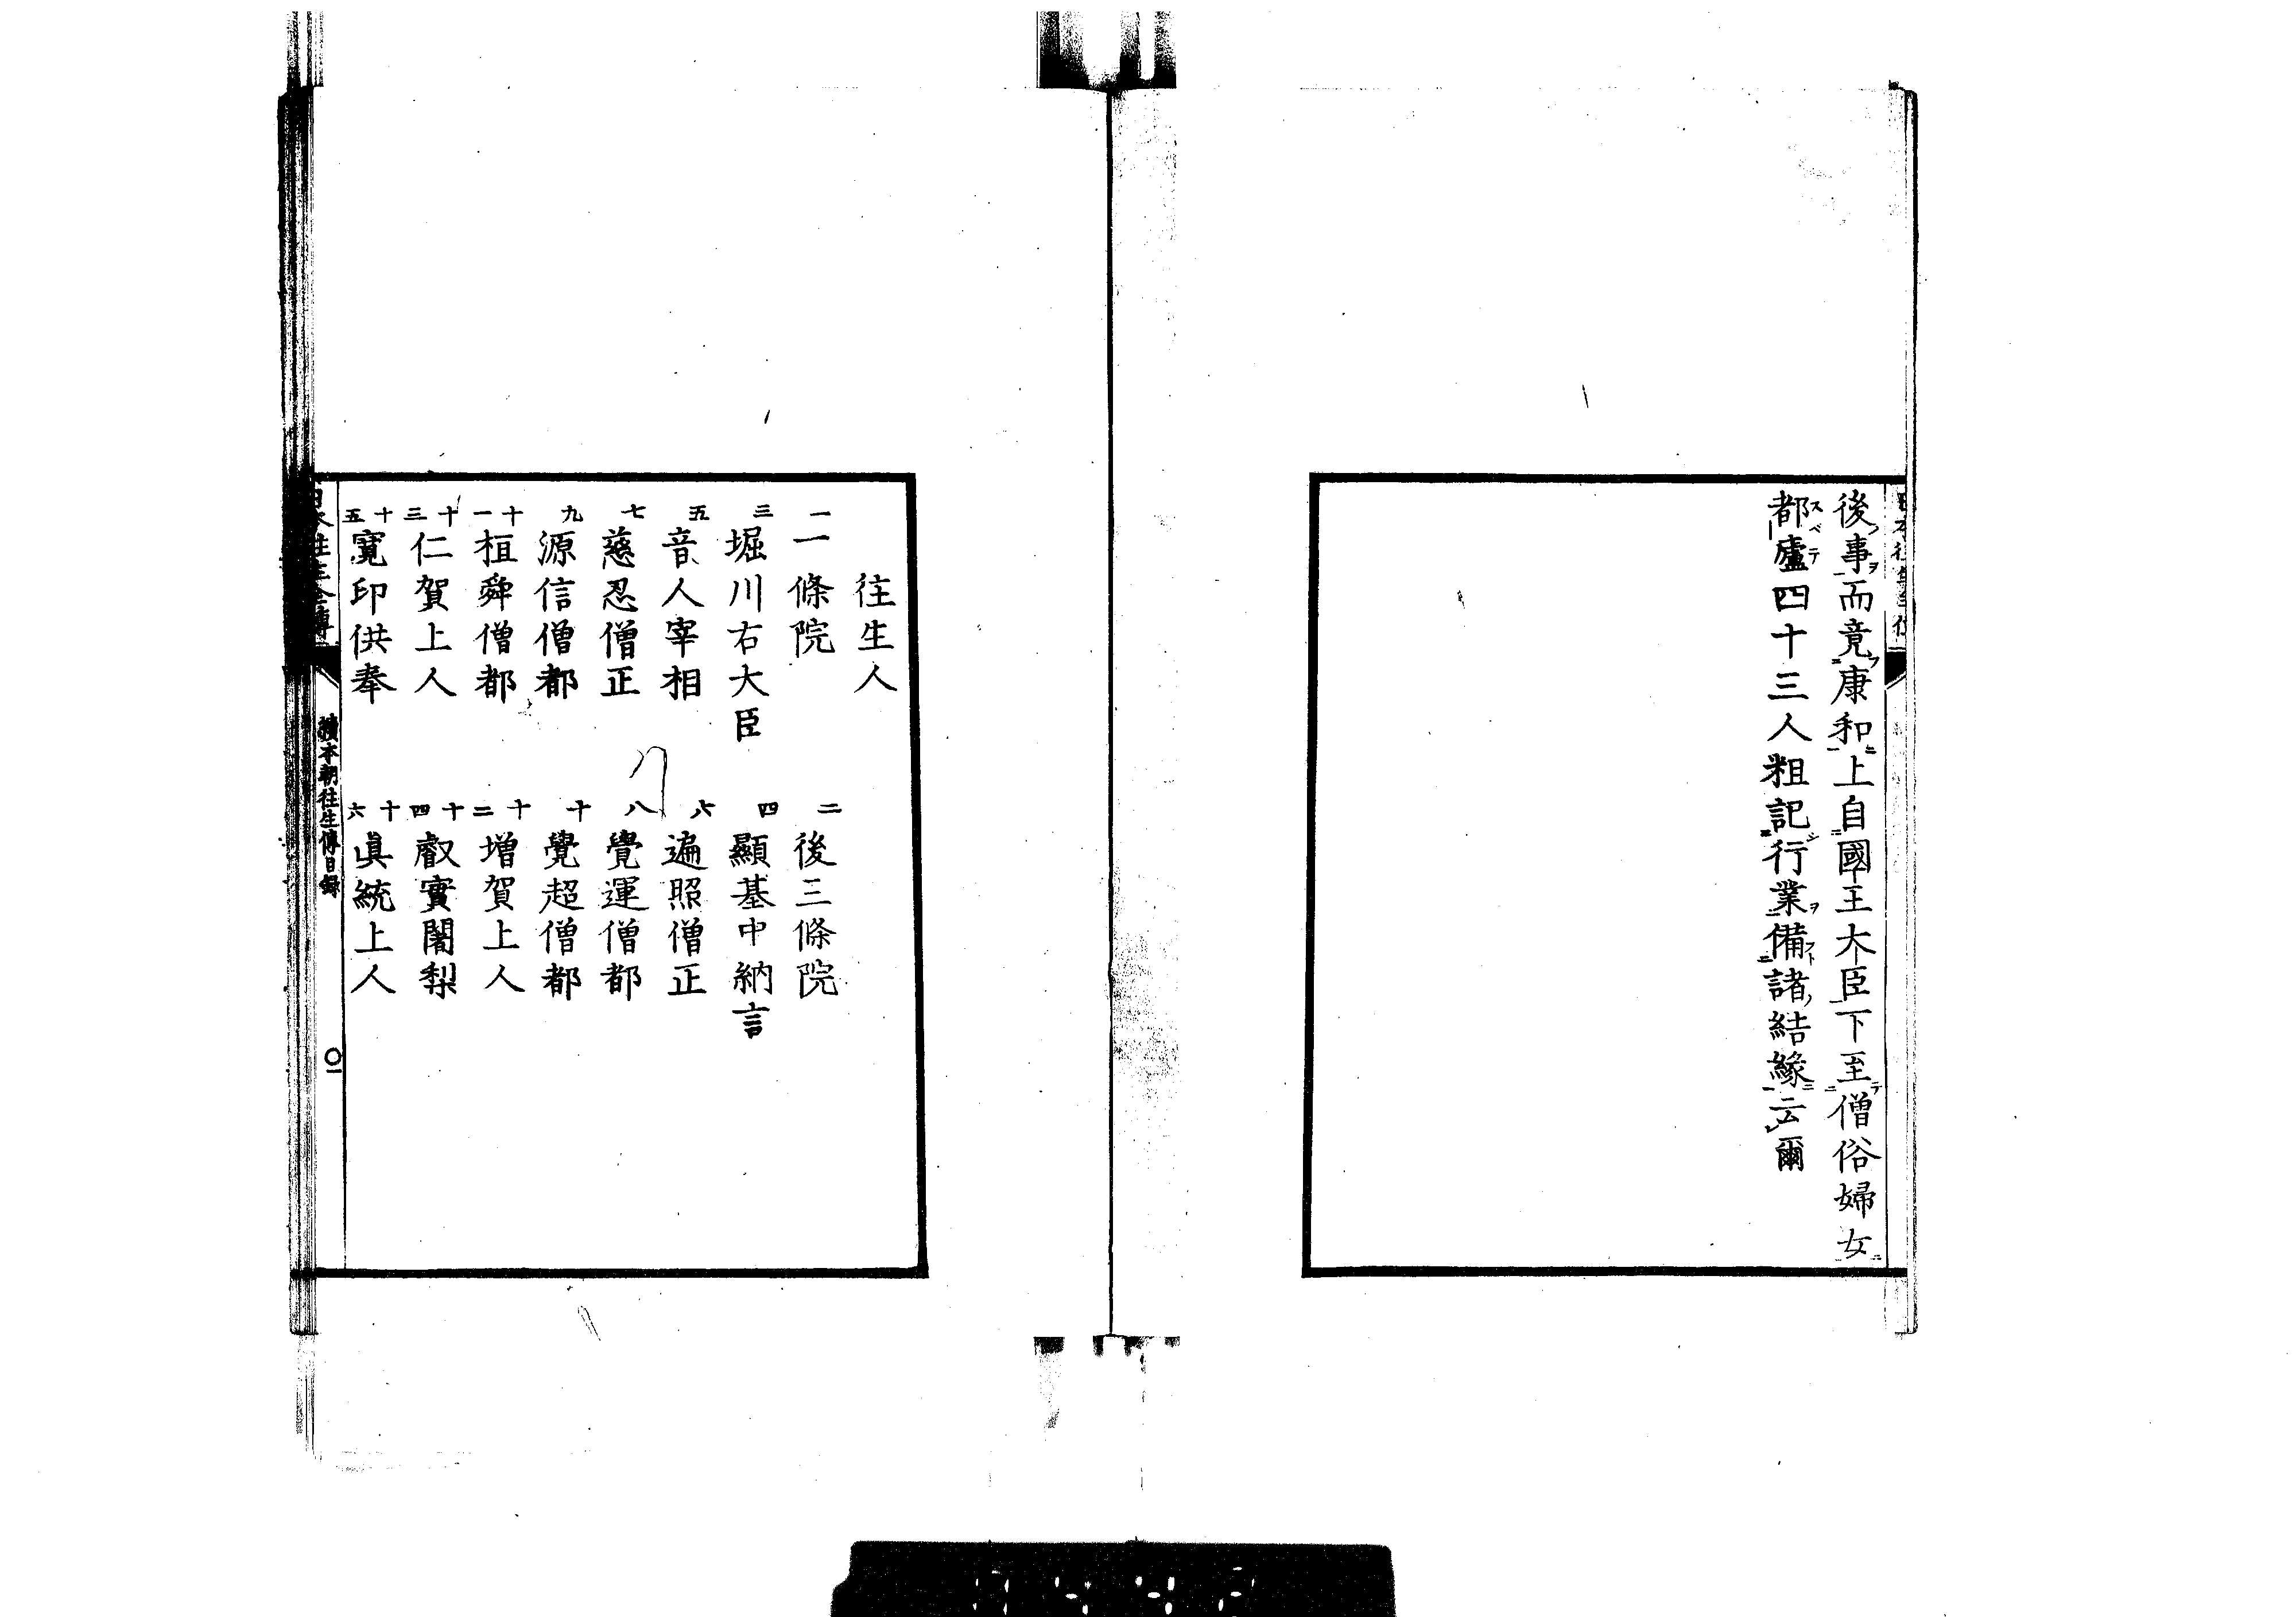 後事而竟康和上自國王大臣下至僧俗婦女
都盧四十三人粗記行業備諸結緣云爾
往生人
一 一條院
二 後三條院
三 堀川右大臣
四 顯基中納言
五 音人宰相
六 遍照僧正
七 慈忍僧正
八 覺運僧都
九 源信僧都
十 覺超僧都
十一 桓舜僧都
十二 增賀上人
十三 仁賀上人
十四 叡實闍梨
十五 寬印供奉
十六 眞統上人
續本朝往生傳目錄
〇一